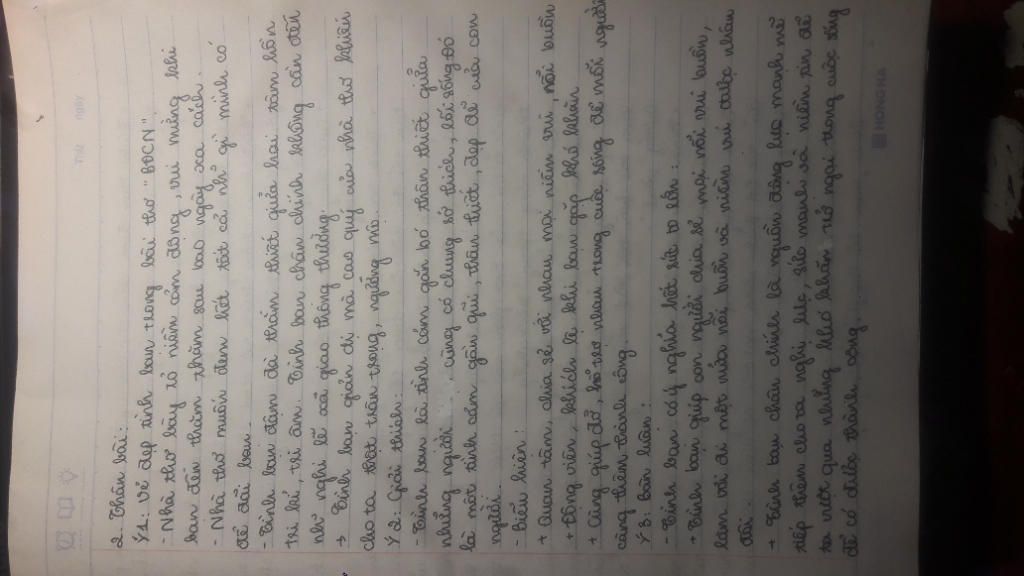 Thứ
ngày
2. Thân bài:
Ý1: Vẻ đẹp tình bạn trong bài thơ "BĐCN"
- Nhà thơ bày tỏ niềm cảm động, vui mừng khi
bạn đến thăm sau bao ngày xa cách.
- Nhà thơ muốn đem hết tất cả những gì mình có
để đãi bạn
- Tình bạn đậm đà thắm thiết giữa hai tâm hồn
tri kỉ, tri âm. Tình bạn chân chính không cần đến
những nghi lễ xã giao thông thường.
→ Tình bạn giản dị mà cao quý của nhà thơ khiến
cho ta thật trân trọng, ngưỡng mộ.
Ý 2: Giải thích:
- Tình bạn là tình cảm gắn bó thân thiết giữa
những người cùng có chung sở thích, lối sống. Đó
là một tình cảm gần gũi, thân thiết, đẹp đẽ của con
người.
- Biểu hiện:
+ Quan tâm, chia sẻ với nhau mọi niềm vui, nỗi buồn
+ Động viên, khích lệ khi bạn gặp khó khăn
+ Cùng giúp đỡ, hỗ trợ nhau trong cuộc sống để mỗi người
càng thêm thành công.
Ý 3: Bàn luận:
- Tình bạn có ý nghĩa hết sức to lớn:
+ Tình bạn giúp con người chia sẻ mọi nỗi vui buồn,
làm vơi đi một nửa nỗi buồn và niềm vui được nhân
đôi:
+ Tình bạn chân chính là nguồn động lực mạnh mẽ
tiếp thêm cho ta nghị lực, sức mạnh và niềm tin để
ta vượt qua những khó khăn trở ngại trong cuộc sống
để có được thành công.
HONG HA